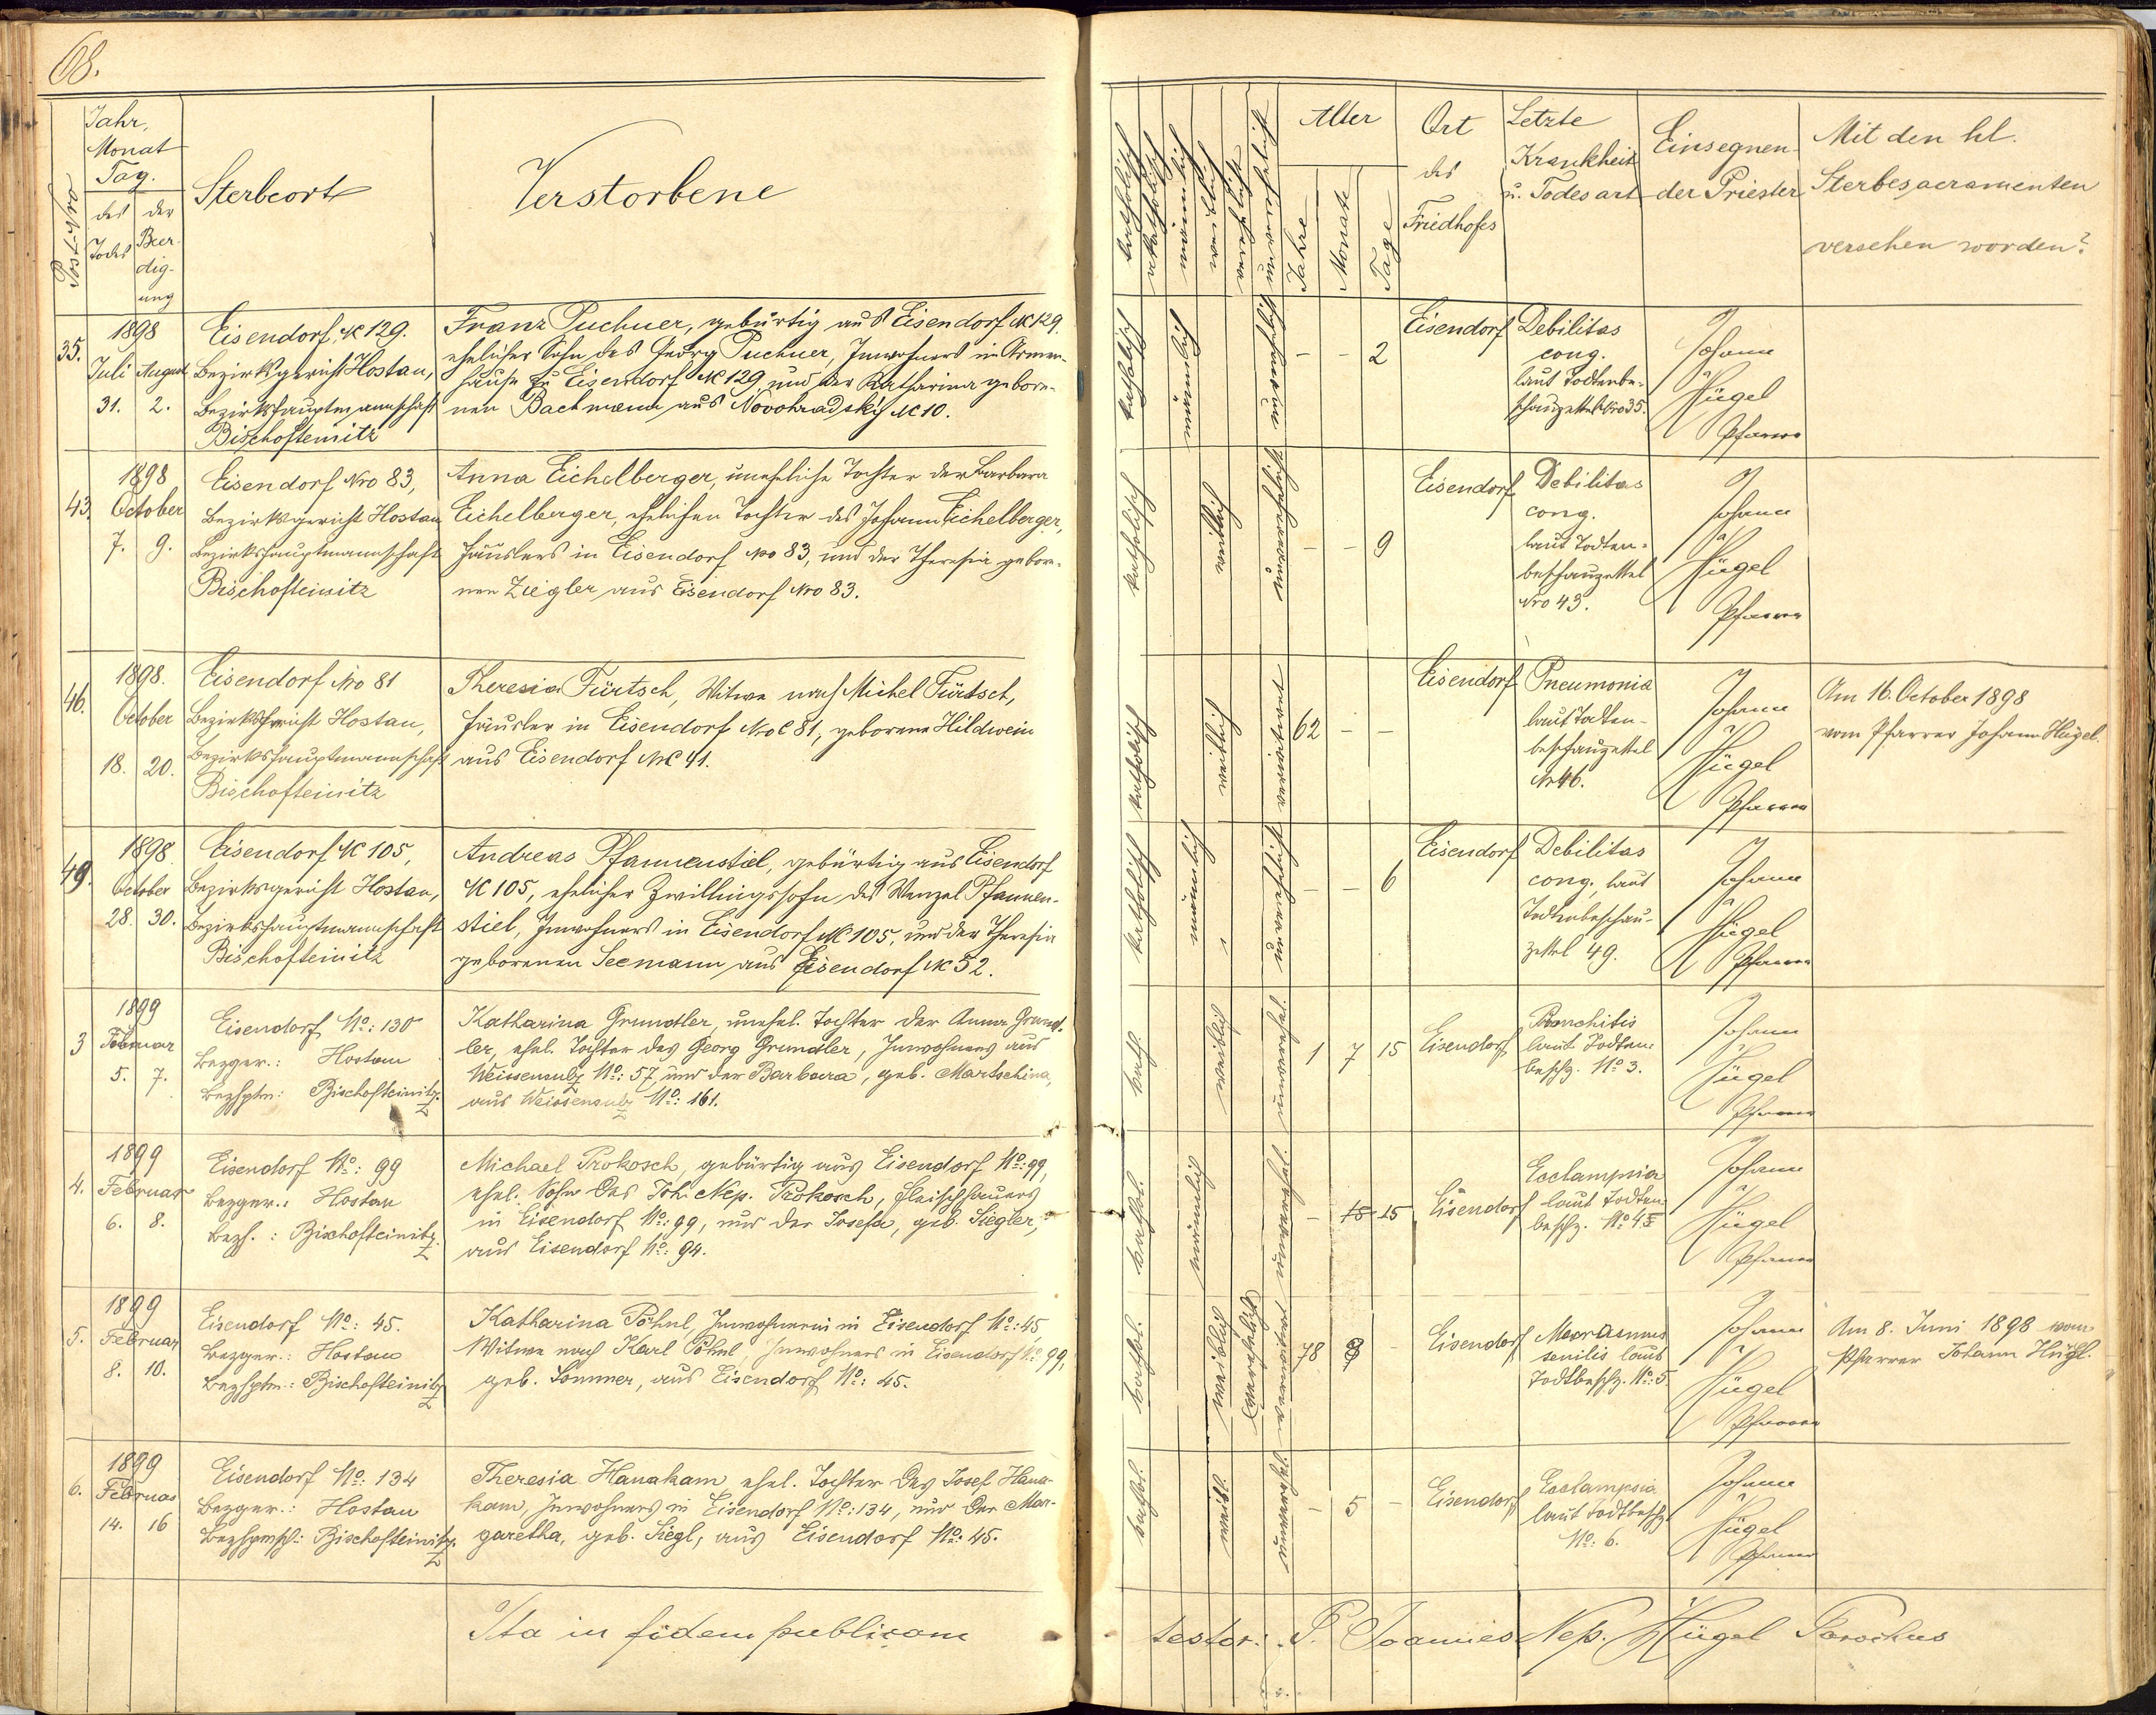 68.
Post-Nro
Jahr,
Monat
Tag.
des
Todes
der
Beer-
dig-
ung
Sterbeort
Verstorbene
katholisch
akatholisch
männlich
weiblich
verehelicht
unverehelicht
Alter
Jahre
Monate
Tage
Ort
des
Friedhofes
Letzte
Krankheit
u. Todesart
Einsegnen-
der Priester
Mit den hl.
Sterbesacramenten
versehen worden?
35.
1898
Juli August
31. 2.
Eisendorf, NC 129.
Bezirksgericht Hostau,
Bezirkshauptmannschaft
Bischofteinitz
Franz Puchner, gebürtig aus Eisendorf NC 129
ehelicher Sohn des Georg Puchner, Inwohners im Armen-
hause zu Eisendorf NC 129, und der Katharina gebore-
nen Bachmann aus Novohradský NC 10.
katholisch
männlich
unverehelicht
- - 2
Eisendorf
Debilitas
cong.
laut Todtenbe-
schauzettel Nro 35.
Johann
Hügel
Pfarrer
43.
1898
October
7. 9.
Eisendorf Nro 83,
Bezirksgericht Hostau
Bezirkshauptmannschaft
Bischofteinitz
Anna Eichelberger, uneheliche Tochter der Barbara
Eichelberger, ehelichen Tochter des Johann Eichelberger,
Häuslers in Eisendorf Nro 83, und der Theresia gebor-
nen Ziegler aus Eisendorf Nro 83.
katholisch
weiblich
unverehelicht
- - 9
Eisendorf
Debilitas
cong.
laut Todten-
beschauzettel
Nro 43.
Johann
Hügel
Pfarrer
46.
1898.
October
18. 20.
Eisendorf Nro 81
Bezirksgericht Hostau,
Bezirkshauptmannschaft
Bischofteinitz
Theresia Fürtsch, Witwe nach Michel Fürtsch,
Häusler in Eisendorf NroC 81, geborene Hildwein
aus Eisendorf NrC 41.
katholisch
weiblich
verwitwet
62 - -
Eisendorf
Pneumonia
laut Todten-
beschauzettel
Nr 46.
Johann
Hügel
Pfarrer
Am 16. October 1898
vom Pfarrer Johann Hügel.
49.
1898
October
28. 30.
Eisendorf NC 105,
Bezirksgericht Hostau,
Bezirkshauptmannschaft
Bischofteinitz
Andreas Pfannenstiel, gebürtig aus Eisendorf
NC 105, ehelicher Zwillingssohn des Wenzel Pfannen-
stiel, Inwohners in Eisendorf NC 105, und der Theresia
geborenen Seemann aus Eisendorf NC 52.
katholisch
männlich
unverehelicht
- - 6
Eisendorf
Debilitas
cong., laut
Todtenbeschau-
zettel 49.
Johann
Hügel
Pfarrer
3
1899
Februar
5. 7.
Eisendorf No: 130
Bezger.: Hostau
Bezhptm: Bischofteinitz.
Katharina Grundler, unehel. Tochter der Anna Grund-
ler, ehel. Tochter des Georg Grundler, Inwohners aus
Weissensulz No: 57, und der Barbara, geb. Martschina,
aus Weissensulz No: 161.
kath.
weiblich
unverehel.
1 7 15
Eisendorf
Bronchitis
laut Todten-
beschz. No 3.
Johann
Hügel
Pfarrer
4.
1899
Februar
6. 8.
Eisendorf No: 99
Bezger.: Hostau
Bezh.: Bischofteinitz.
Michael Prokosch, gebürtig aus Eisendorf No: 99,
ehel. Sohn des Joh. Nep. Prokosch, Fleischhauers
in Eisendorf No: 99, und der Josefa, geb. Siegler,
aus Eisendorf No: 94.
kathol.
männlich
unverehel.
- 15 15
Eisendorf
Ecclampsia
laut Todten-
beschz. No 4
Johann
Hügel
Pfarrer
5.
1899
Februar
8. 10.
Eisendorf No: 45.
Bezger.: Hostau
Bezhptm.: Bischofteinitz
Katharina Pöhnl, Inwohnerin in Eisendorf No: 45,
Witwe nach Karl Pöhnl, Inwohners in Eisendorf No: 99,
geb. Sommer, aus Eisendorf No: 45.
kathol.
weiblich
verehelicht
verwitwet
78 8 -
Eisendorf
Marasmus
senilis laut
Todtbeschz. No: 5.
Johann
Hügel
Pfarrer
Am 8. Juni 1898 vom
Pfarrer Johann Hügl.
6.
1899
Februar
14. 16
Eisendorf No: 134
Bezger.: Hostau
Bezhptmsch: Bischofteinitz.
Theresia Hanakam, ehel. Tochter des Josef Hana-
kam, Inwohners in Eisendorf No: 134, und der Mar-
garetha, geb. Siegl, aus Eisendorf No: 45.
kathol.
weibl.
unverehel.
- 5 -
Eisendorf
Ecclampsia
laut Todtbeschz
No: 6.
Johann
Hügel
Pfarrer
Ita in fidem publicam
testor: P. Joannes Nep. Hügel Parochus